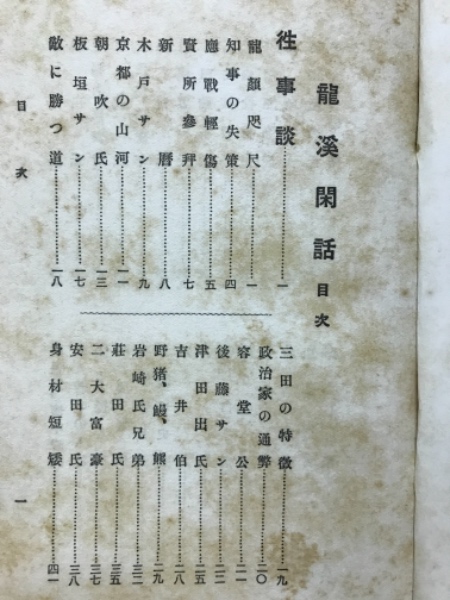 龍溪閑話 目次
徃事談……一
龍顏咫尺……一
知事の失策……四
應戰輕傷……五
賢所參拜……七
新曆……八
木戸サン……九
京都の山河……一一
朝吹氏……一三
板垣サン……一七
敵に勝つ道……一八
三田の特徵……一九
政治家の通弊……二〇
容堂公……二一
後藤サン……二二
津田出氏……二二
吉井伯……二八
野猪、鰻、熊……二九
岩崎氏兄弟……三二
莊田氏……三五
二大富豪……三七
安田氏……三八
身材短矮……四一
目次 一